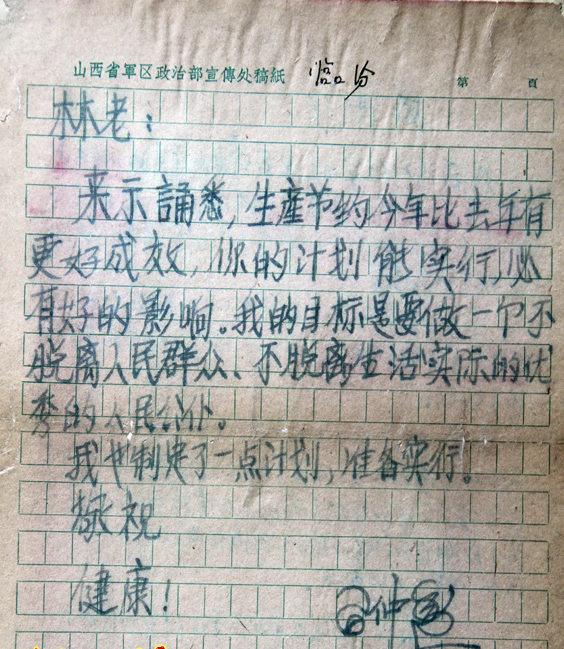 山西省軍区政治部宣傳处稿紙 临汾 第 頁
林老：
来示誦悉，生産节约今年比去年有
更好成效，你的计划能实行，必
有好的影响。我的目标是要做一个不
脱离人民群众、不脱离生活实际的优
秀的人民公仆。
我也制定了一点计划，准备实行。
敬祝
健康！
仲